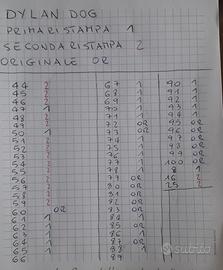 DYLAN DOG
PRIMA RISTAMPA 1
SECONDA RISTAMPA 2
ORIGINALE OR
44 2
45 2
46 2
47 1
48 2
49 2
50 1
51 2
52 2
53 2
54 2
55 2
56 2
57 2
58 2
59 2
60 OR
61 1
62 1
63 1
64 1
65 1
66
67 1
68 1
69 1
70 1
71 1
72 OR
73 OR
74 1
75 1
76 1
77 1
78 1
79 OR
80 OR
81 OR
82 OR
83 OR
84 1
85 OR
86
87 OR
88 1
89
90 1
91 1
92 1
93 1
94 1
95 OR
96 OR
97 OR
98 OR
99 OR
100 OR
8 1
16 2
25 2
Subito